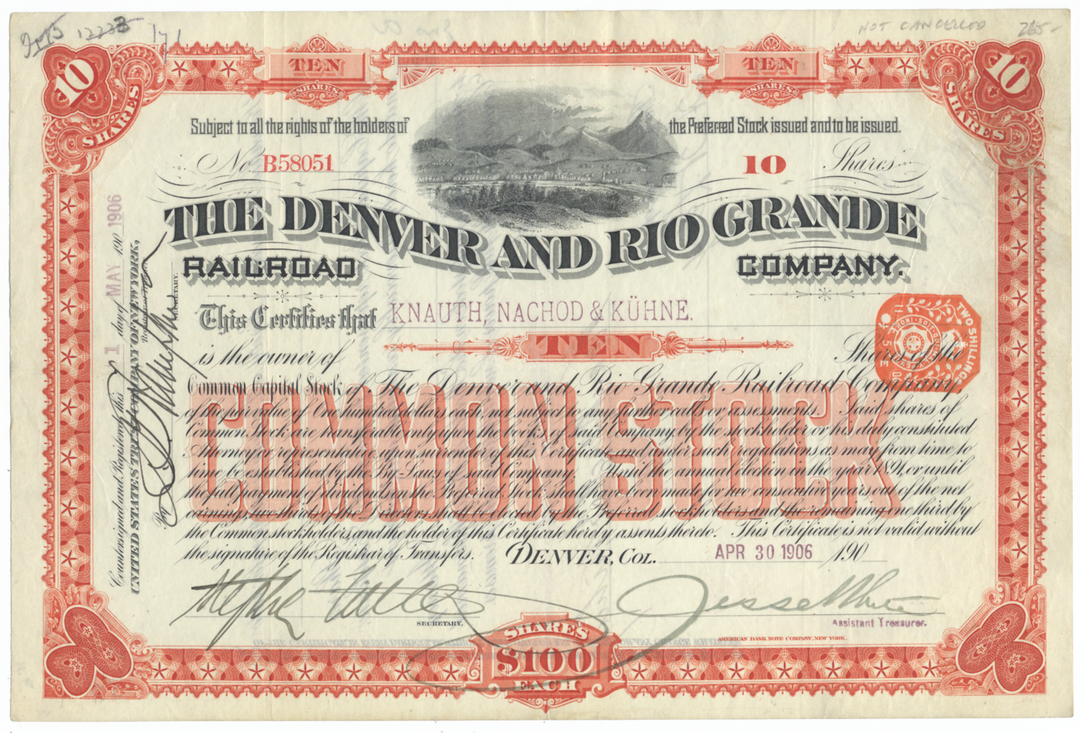 12233
NOT CANCELLED
265-
10
SHARES
TEN
SHARES
TEN
SHARES
10
SHARES
Subject to all the rights of the holders of the Preferred Stock issued and to be issued.
No. B58051
10 Shares
THE DENVER AND RIO GRANDE
RAILROAD COMPANY.
This Certifies that KNAUTH, NACHOD & KÜHNE.
is the owner of TEN Shares of the
Common Capital Stock of The Denver and Rio Grande Railroad Company
of the par value of One hundred dollars each not subject to any further calls or assessments. Said shares of
Common Stock are transferable only upon the books of said Company by the stockholder or his duly constituted
Attorney or representative upon surrender of this Certificate, under such regulations as may from time to
time be established by the By Laws of said Company. Until the annual election in the year 1891, or until
the full payment of dividends on the Preferred Stock shall have been made for two consecutive years out of the net
earnings two thirds of the Directors shall be elected by the Preferred stockholders and the remaining one third by
the Common stockholders, and the holder of this Certificate hereby assents thereto. This Certificate is not valid without
the signature of the Registrar of Transfers.
DENVER, COL. APR 30 1906 190
COMMON STOCK
Stephen Little
SECRETARY.
Jesse White
Assistant Treasurer.
AMERICAN BANK NOTE COMPANY, NEW YORK.
SHARES
$100
EACH
Countersigned and Registered this 1 day of MAY 190 1906
UNITED STATES TRUST COMPANY OF NEW YORK,
SECRETARY.
TWO SHILLINGS